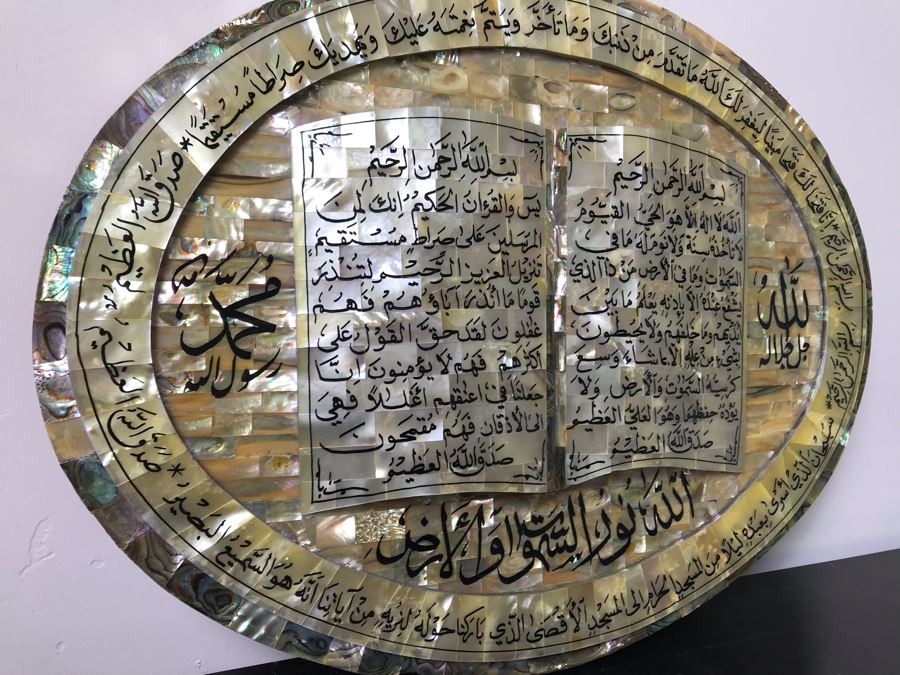 بسم الله الرحمن الرحيم * إنا فتحنا لك فتحًا مبينًا ليغفر لك الله ما تقدم من ذنبك وما تأخر ويتم نعمته عليك ويهديك صراطًا مستقيمًا * صدق الله العظيم
بسم الله الرحمن الرحيم * سبحان الذي أسرى بعبده ليلًا من المسجد الحرام إلى المسجد الأقصى الذي باركنا حوله لنريه من آياتنا إنه هو السميع البصير * صدق الله العظيم
الله جل جلاله
بسم الله الرحمن الرحيم
الله لا إله إلا هو الحي القيوم
لا تأخذه سنة ولا نوم له ما في
السموات وما في الأرض من ذا الذي
يشفع عنده إلا بإذنه يعلم ما بين
أيديهم وما خلفهم ولا يحيطون
بشيء من علمه إلا بما شاء وسع
كرسيه السموات والأرض ولا
يؤده حفظهما وهو العلي العظيم
صدق الله العظيم
بسم الله الرحمن الرحيم
يس والقرءان الحكيم إنك لمن
المرسلين على صراط مستقيم
تنزيل العزيز الرحيم لتنذر
قوما ما أنذر آباؤهم فهم
غفلون لقد حق القول على
أكثرهم فهم لا يؤمنون إنا
جعلنا في أعنقهم أغللا فهي
إلى الأذقان فهم مقمحون
صدق الله العظيم
محمد رسول الله
الله نور السموات والأرض